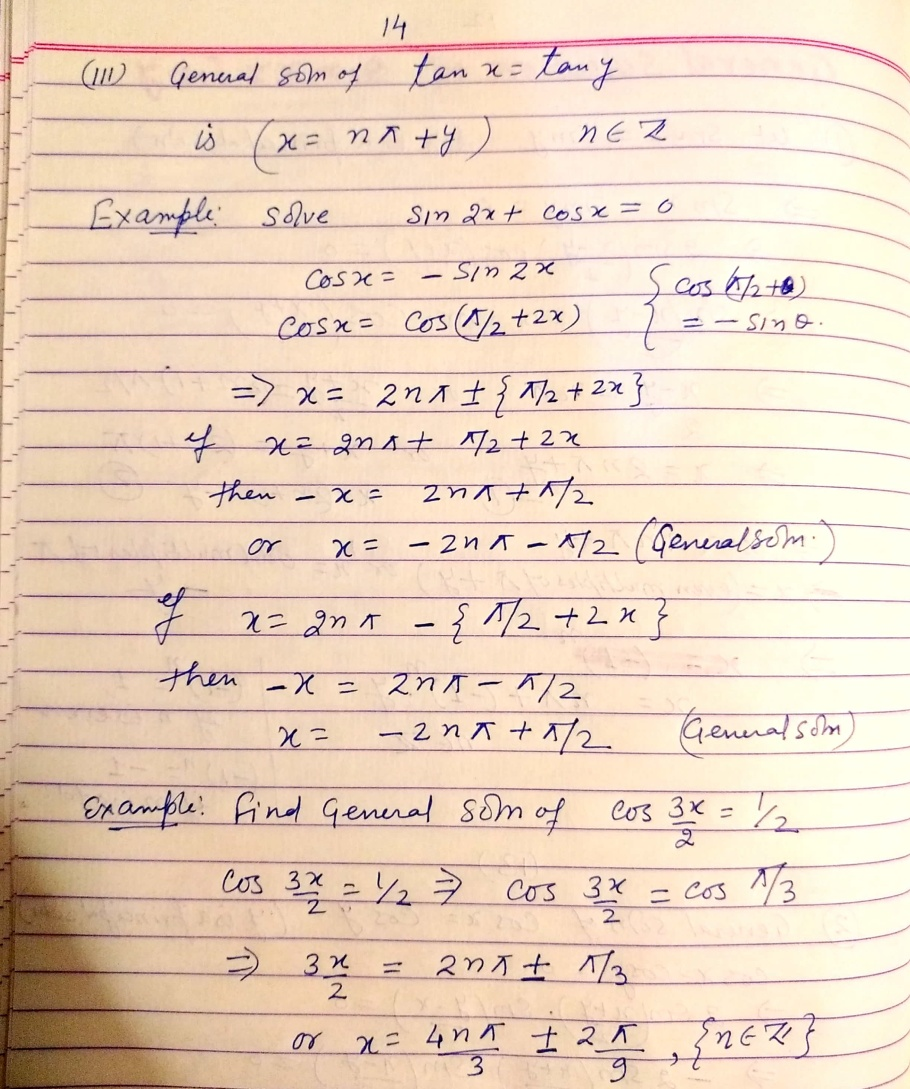 14
(III) General soln of tan x = tan y
is (x = nπ + y) n ∈ Z
Example: solve sin 2x + cos x = 0
cos x = - sin 2x
{ cos (π/2 + θ)
cos x = cos (π/2 + 2x)
= - sin θ.
=> x = 2nπ ± {π/2 + 2x}
if x = 2nπ + π/2 + 2x
then - x = 2nπ + π/2
or x = - 2nπ - π/2 (General soln.)
if x = 2nπ - {π/2 + 2x}
then - x = 2nπ - π/2
x = - 2nπ + π/2 (General soln)
Example: Find General soln of cos 3x/2 = 1/2
cos 3x/2 = 1/2 => cos 3x/2 = cos π/3
=> 3x/2 = 2nπ ± π/3
or x = 4nπ/3 ± 2π/9, {n ∈ Z}